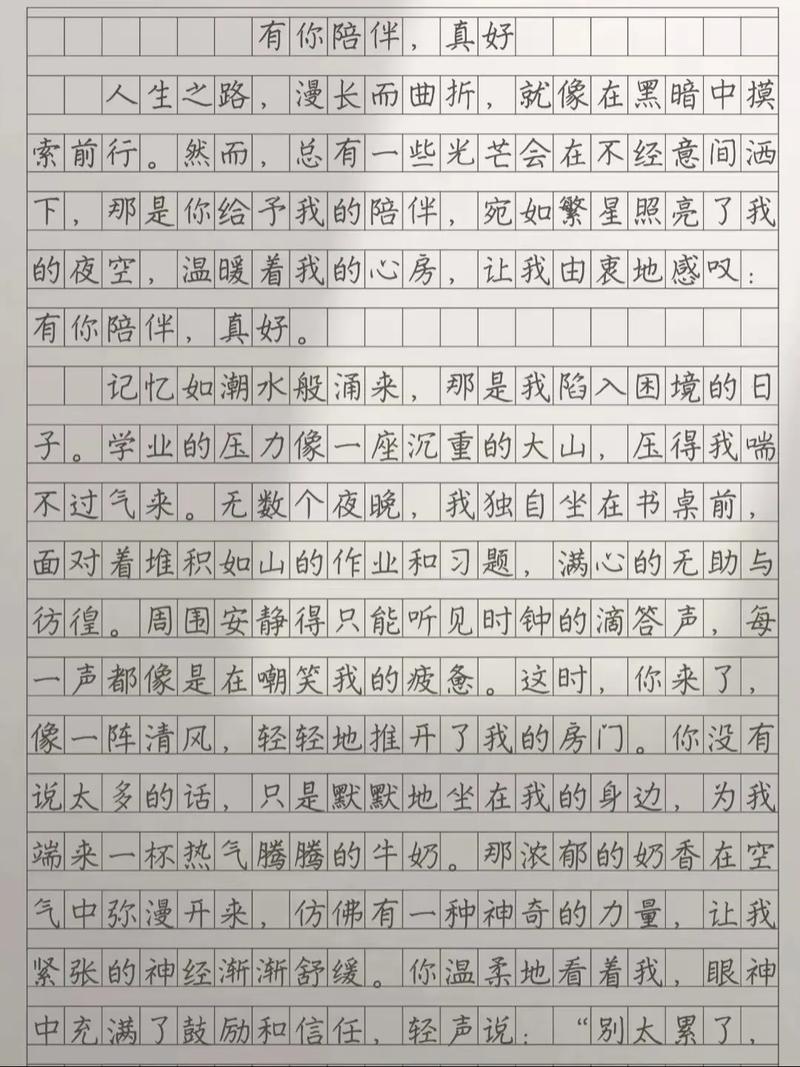 有你陪伴，真好
人生之路，漫长而曲折，就像在黑暗中摸
索前行。然而，总有一些光芒会在不经意间洒
下，那是你给予我的陪伴，宛如繁星照亮了我
的夜空，温暖着我的心房，让我由衷地感叹：
有你陪伴，真好。
记忆如潮水般涌来，那是我陷入困境的日
子。学业的压力像一座沉重的大山，压得我喘
不过气来。无数个夜晚，我独自坐在书桌前，
面对着堆积如山的作业和习题，满心的无助与
彷徨。周围安静得只能听见时钟的滴答声，每
一声都像是在嘲笑我的疲惫。这时，你来了，
像一阵清风，轻轻地推开了我的房门。你没有
说太多的话，只是默默地坐在我的身边，为我
端来一杯热气腾腾的牛奶。那浓郁的奶香在空
气中弥漫开来，仿佛有一种神奇的力量，让我
紧张的神经渐渐舒缓。你温柔地看着我，眼神
中充满了鼓励和信任，轻声说：“别太累了，